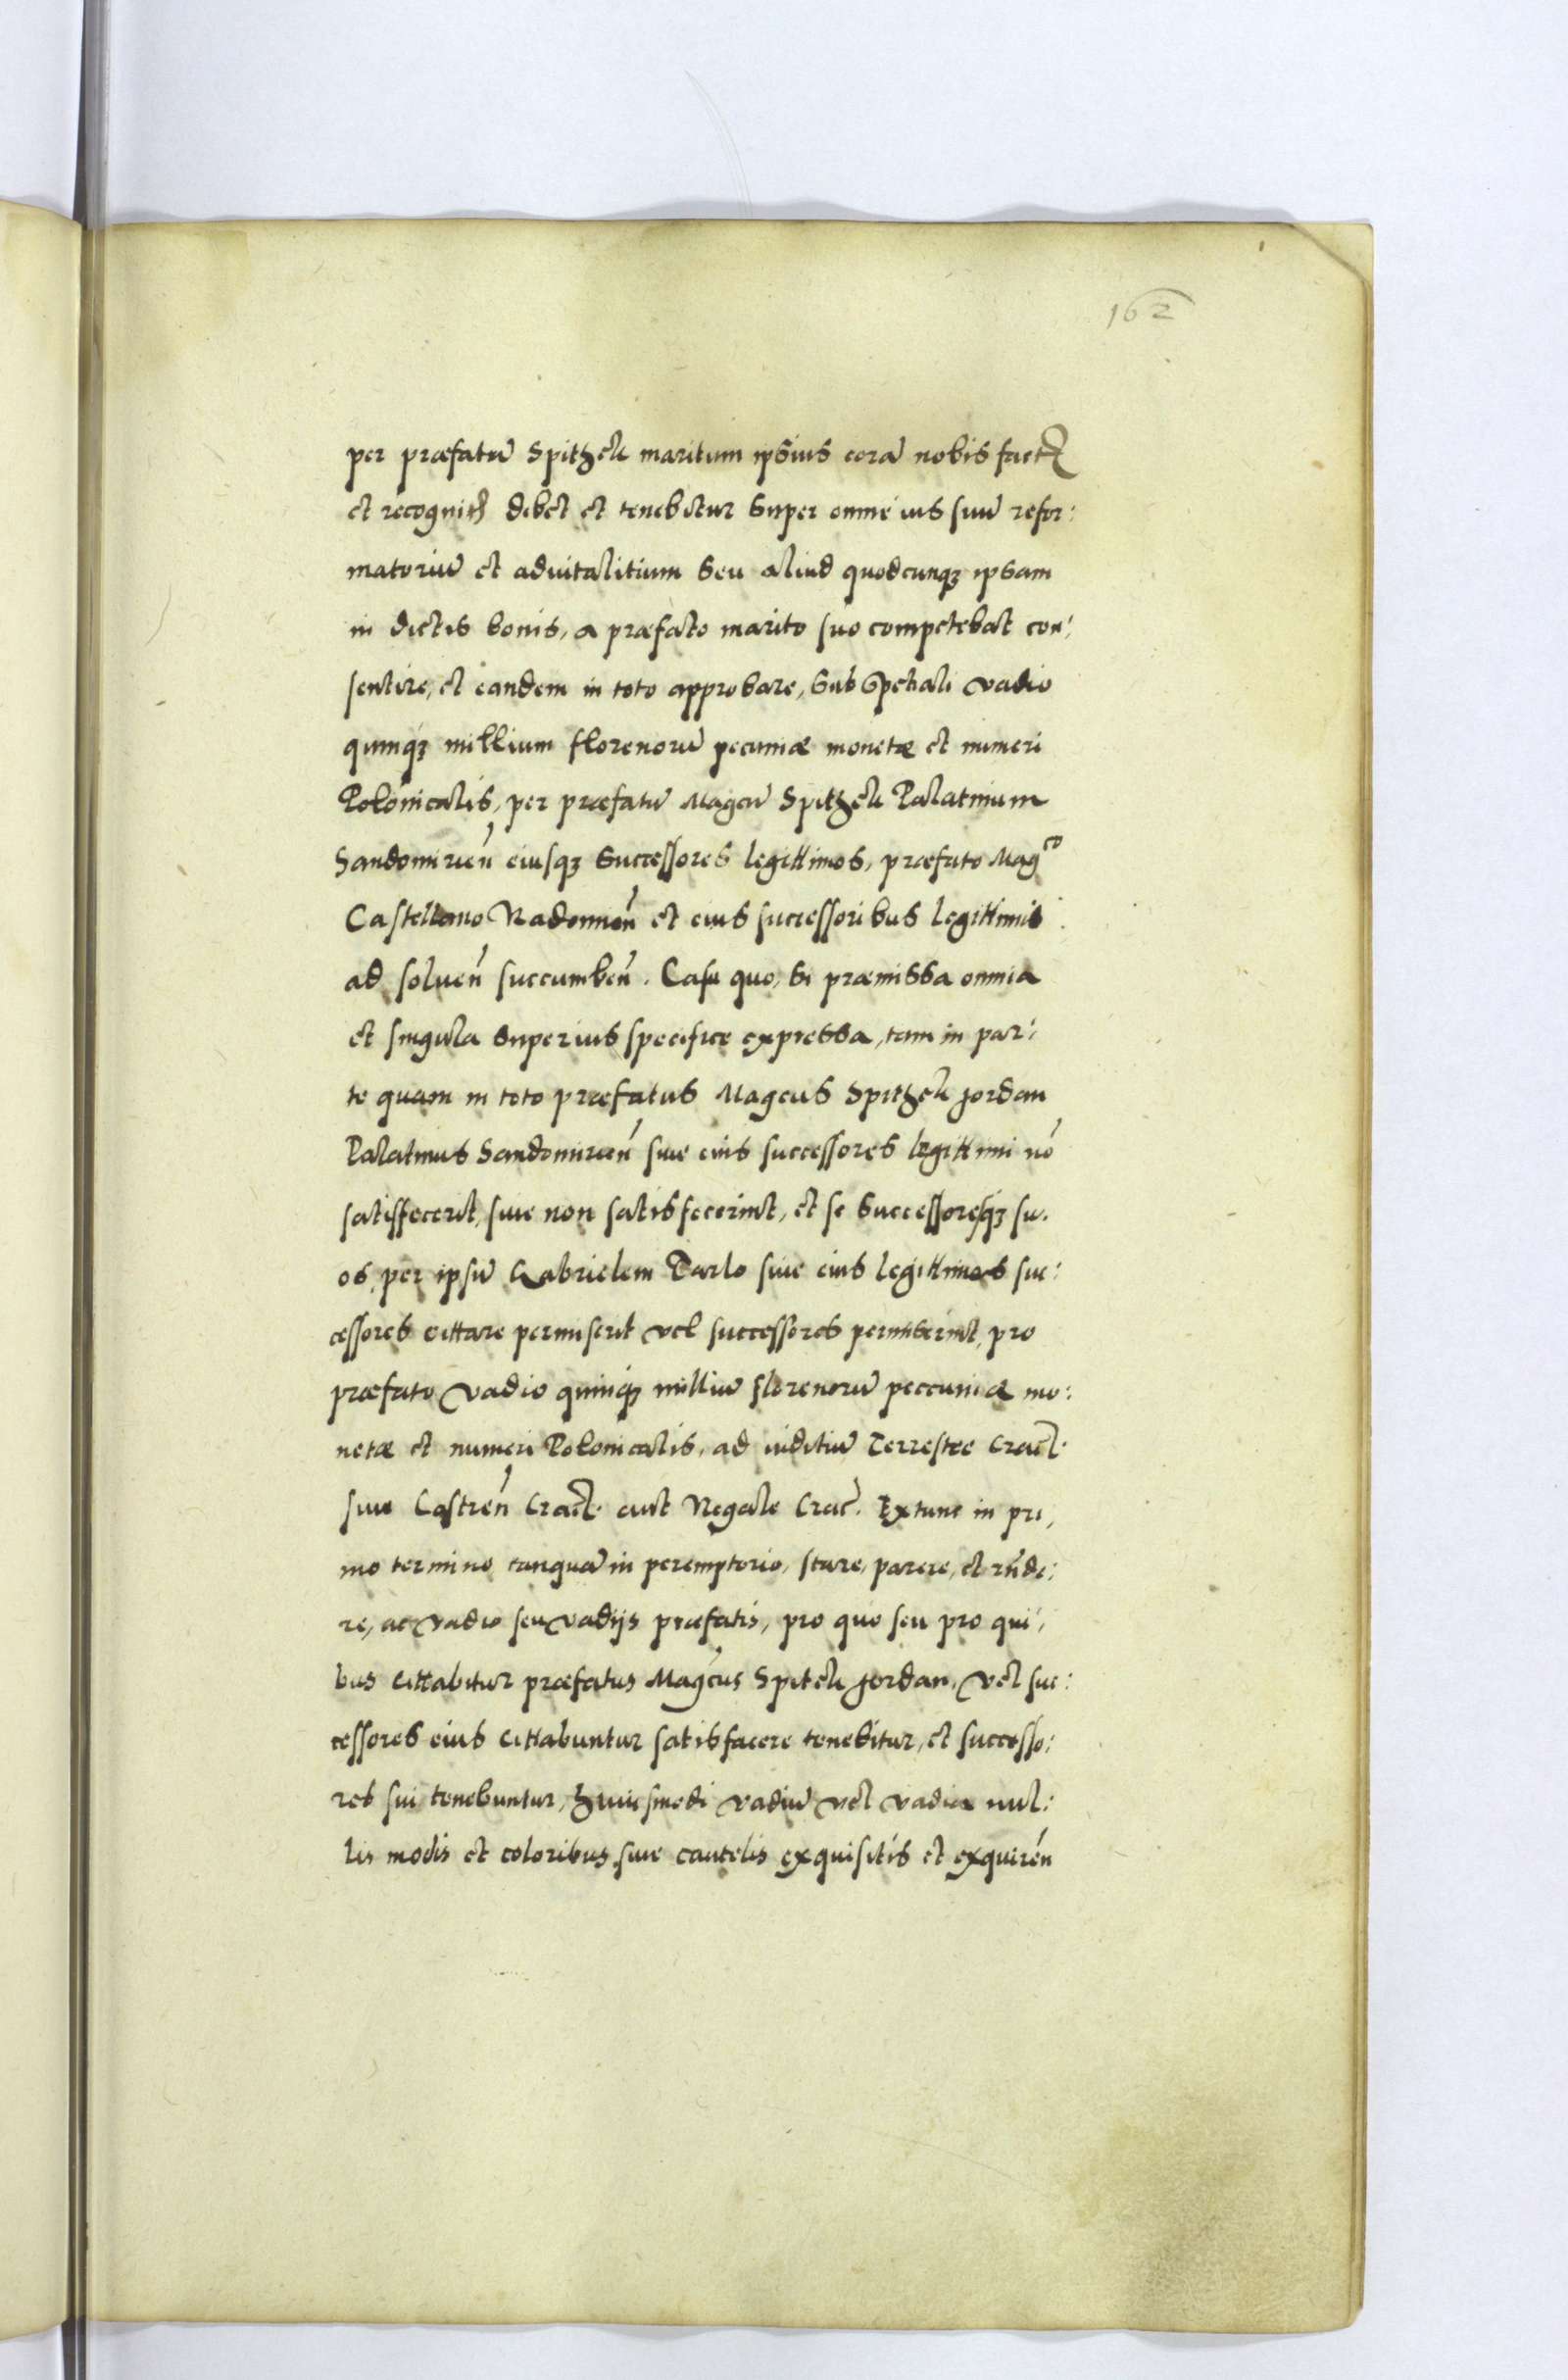 162
per præfatū Spitzek maritum ipsius corā nobis fact
et recognit debet et tenebitur super omne ius suū refor:
matoriū et advitalitium seu aliud quodcunqz ipsam
in dictis bonis, a præfato marito suo competebat con:
sentire, et eandem in toto approbare, sub spetiali vadio
quinqz millium florenorū pecuniæ monetæ et numeri
Polonicalis, per præfatū Magcū Spitzek Palatinum
Sandomirień eiusqz successores legittimos, præfato Mag^co
Castellano Radomień et eius successoribus legittimis
ad solueń succumbeń. Casu quo, si præmissa omnia
et singula superius specifice expressa, tam in par:
te quam in toto præfatus Magcus Spitzek Jordan
Palatinus Sandomirień siue eius successores legittimi nō
satisfecerit, siue non satisfecerint, et se successoresqz su.
os, per ipsū Gabrielem Tarlo siue eius legittimos suc:
cessores cittare permiserit vel successores permiserint, pro
præfato vadio quinqz milliū florenorū peccuniæ mo:
netæ et numeri Polonicalis, ad iuditiū Terrestre Crac.
siue Castreń Crac. aut Regale Crac. Extunc in pri,
mo termino tanquā in peremptorio, stare, parere, et rn̄de:
re, ac vadio seu vadijs præfatis, pro quo seu pro qui,
bus cittabitur præfatus Magcus Spitek Jordan, vel suc:
cessores eius cittabuntur satisfacere tenebitur, et successo:
res sui tenebuntur, huiusmodi vadiū vel vadia nul:
lis modis et coloribus siue cautelis exquisitis et exquireń